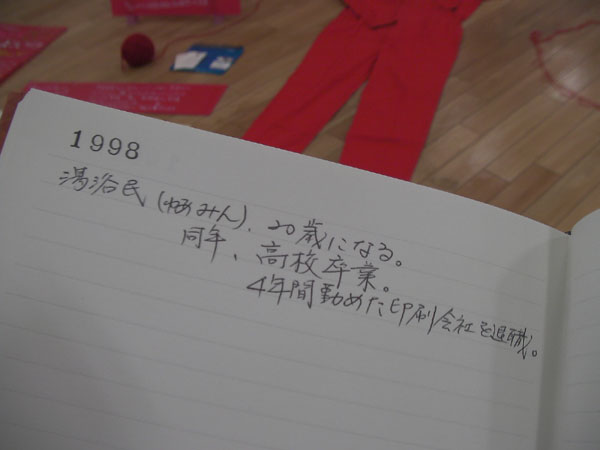 1998
湯浴民（ゆあみん）、20歳になる。
同年、高校卒業。
4年間勤めた印刷会社を退職。